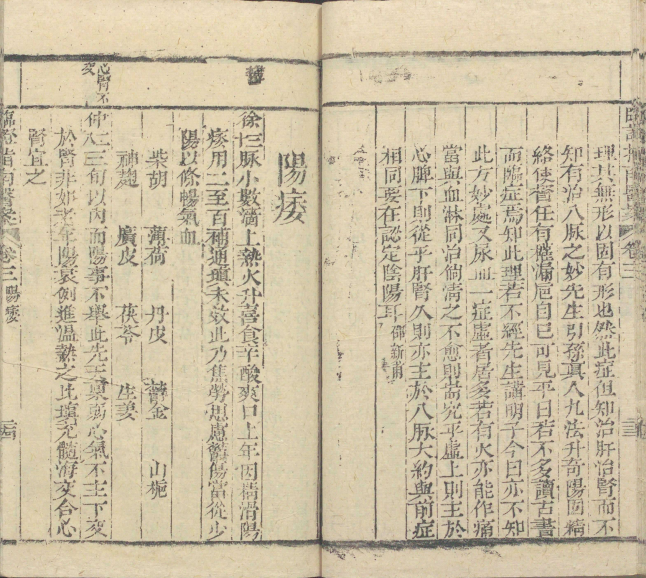 理其無形以固有形也然此症但知治肝治腎而不
知有治八脉之妙先生引孫眞人九法升奇陽固精
絡使督任有權漏巵自已可見平日若不多讀古書
而臨症焉知此理若不經先生講明予今日亦不知
此方妙處又尿血一症虛者居多若有火亦能作痛
當與血淋同治倘清之不愈則當究乎虛上則主於
心脾下則從乎肝腎久則亦主於八脉大約與前症
相同要在認定陰陽耳 邵新甫
臨證指南醫案 卷三
陽痿
徐 三十 脉小數濇上熱火升喜食辛酸爽口上年因精滑陽
痿用二至百補通填未效此乃焦勞思慮鬱傷當從少
陽以條暢氣血
柴胡 薄荷 丹皮 鬱金 山梔
神麯 廣皮 茯苓 生姜
心腎不交
仲 二八 三旬以內而陽事不舉此先天稟弱心氣不主下交
於腎非如老年陽衰例進溫熱之比填充髓海交合心
腎宜之
臨證指南醫案 卷三 陽痿